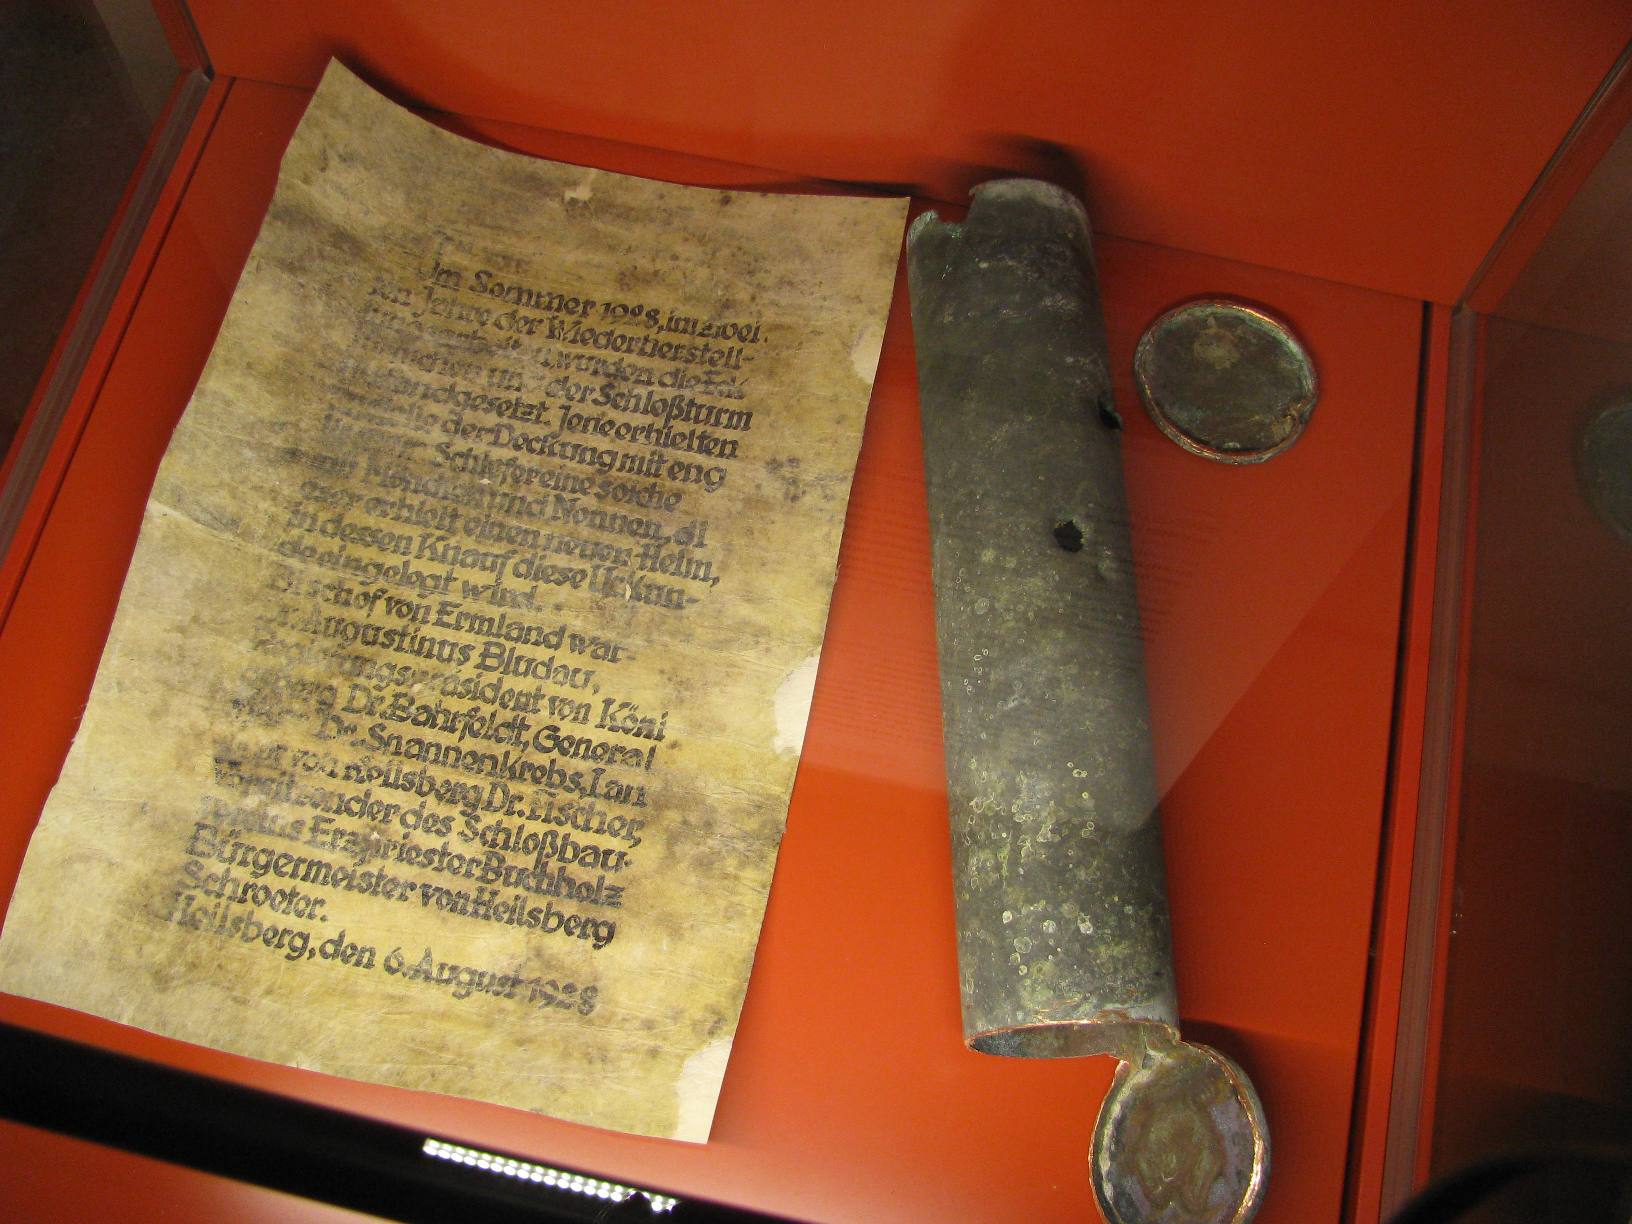 Im Sommer 1928, im zwei-
ten Jahre der Wiederherstell-
wurden die
und der Schloßturm
instandgesetzt. Jene erhielten
der Deckung mit eng
Schiefer eine solche
mit Mönchen und Nonnen, di
eser erhielt einen neuen Helm,
in dessen Knauf diese Urkun-
de eingelegt wird.
Bischof von Ermland war
Augustinus Bludau,
Regierungspräsident von Köni
Dr. Bahrfeldt, General
Dr. Snannenkrebs, Lan
von Heilsberg Dr. Fischer,
Vorsitzender des Schloßbau-
Erzpriester Buchholz
Bürgermeister von Heilsberg
Schroeter.
Heilsberg, den 6. August 1928